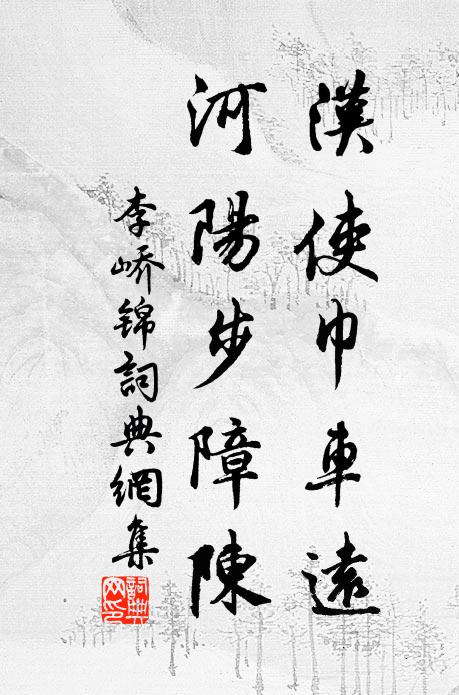 漢使巾車遠
河陽步障陳
李嶠錦詞典網集
詞典網印